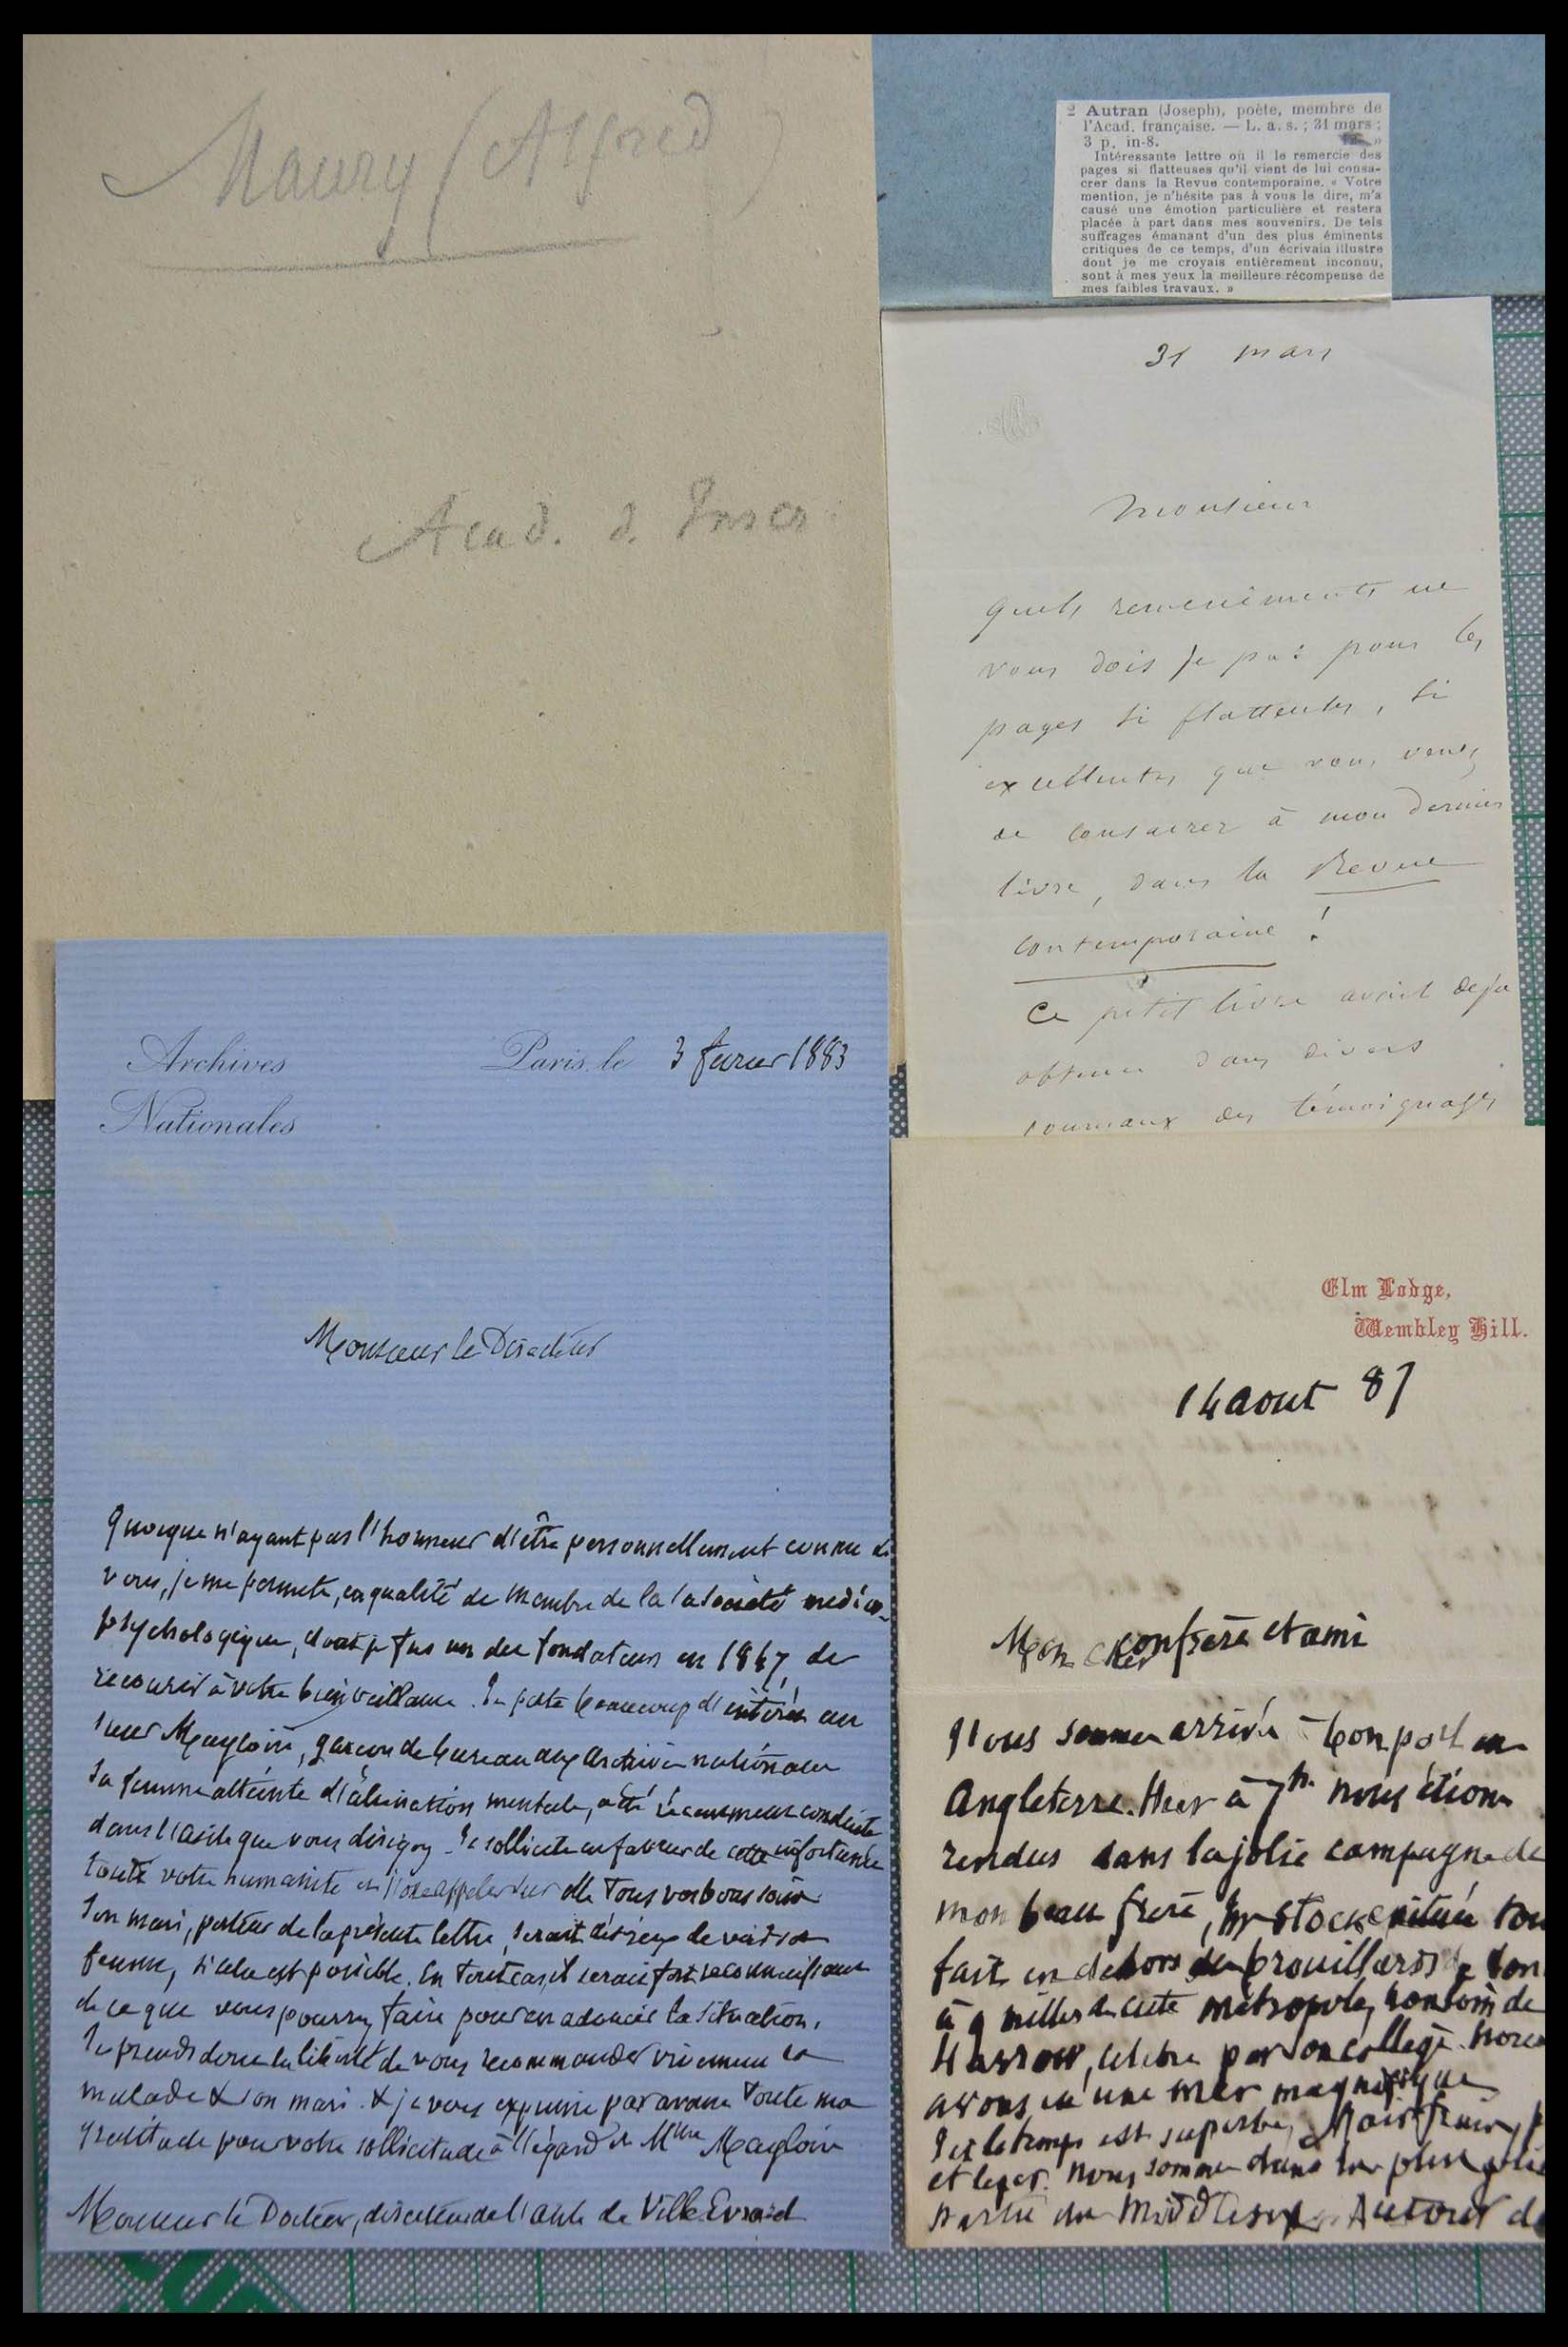 Maury (Alfred)
Acad. d. Inscr.
2 Autran (Joseph), poète, membre de
l'Acad. française. — L. a. s. ; 31 mars ;
3 p. in-8. »
Intéressante lettre où il le remercie des
pages si flatteuses qu'il vient de lui consa-
crer dans la Revue contemporaine. « Votre
mention, je n'hésite pas à vous le dire, m'a
causé une émotion particulière et restera
placée à part dans mes souvenirs. De tels
suffrages émanant d'un des plus éminents
critiques de ce temps, d'un écrivain illustre
dont je me croyais entièrement inconnu,
sont à mes yeux la meilleure récompense de
mes faibles travaux. »
31 mars
Monsieur
Quels remerciments ne
vous dois je pas pour les
pages si flatteuses, si
excellentes que vous venez
de consacrer à mon dernier
livre, dans la Revue
contemporaine !
Ce petit livre avait deja
obtenu dans divers
journaux des témoignages
Archives
Nationales
Paris, le 3 fevrier 1883
Monsieur le Directeur
Quoique n'ayant pas l'honneur d'être personnellement connu de
vous, je me permets, en qualité de membre de la Société medico-
psychologique, dont je fus un des fondateurs en 1847, de
recourir à votre bienveillance. Je porte beaucoup d'intérêt au
sieur Magloire, garçon de bureau aux Archives nationales
Sa femme atteinte d'aliénation mentale, a été récemment conduite
dans l'asile que vous dirigez. Je sollicite en faveur de cette infortunée
toute votre humanité et j'ose appeler sur elle tous vos bons soins.
Son mari, porteur de la présente lettre, serait désireux de voir sa
femme, si cela est possible. En tout cas, il serait fort reconnaissant
de ce que vous pourrez faire pour en adoucir la situation.
Je prends donc la liberté de vous recommander vivement la
malade & son mari. & je vous exprime par avance toute ma
gratitude pour votre sollicitude à l'égard de Mme Magloire
Monsieur le Docteur, directeur de l'asile de Ville Evrard
Elm Lodge,
Wembley Hill.
14 aout 87
Mon cher confrère et ami
Nous sommes arrivés à bon port en
Angleterre. Hier à 7h. nous étions
rendus dans la jolie campagne de
mon beau frère, Mr Stock, située tou
fait en dehors des brouillards de Lon
à 9 milles de cette métropole, non loin de
Harrow, celebre par son collège. Nous
avons eu une mer magnifique
Ici le temps est superbe, mais frais
et leger. Nous sommes dans la plus jolie
partie du Middlesex. Autour de